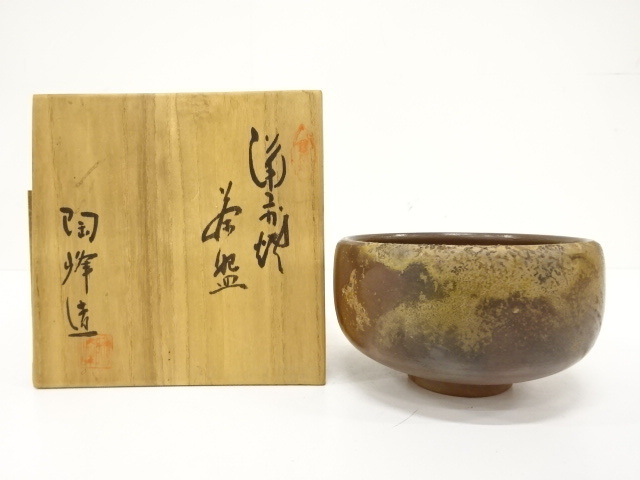 備前焼
茶盌
陶峰造